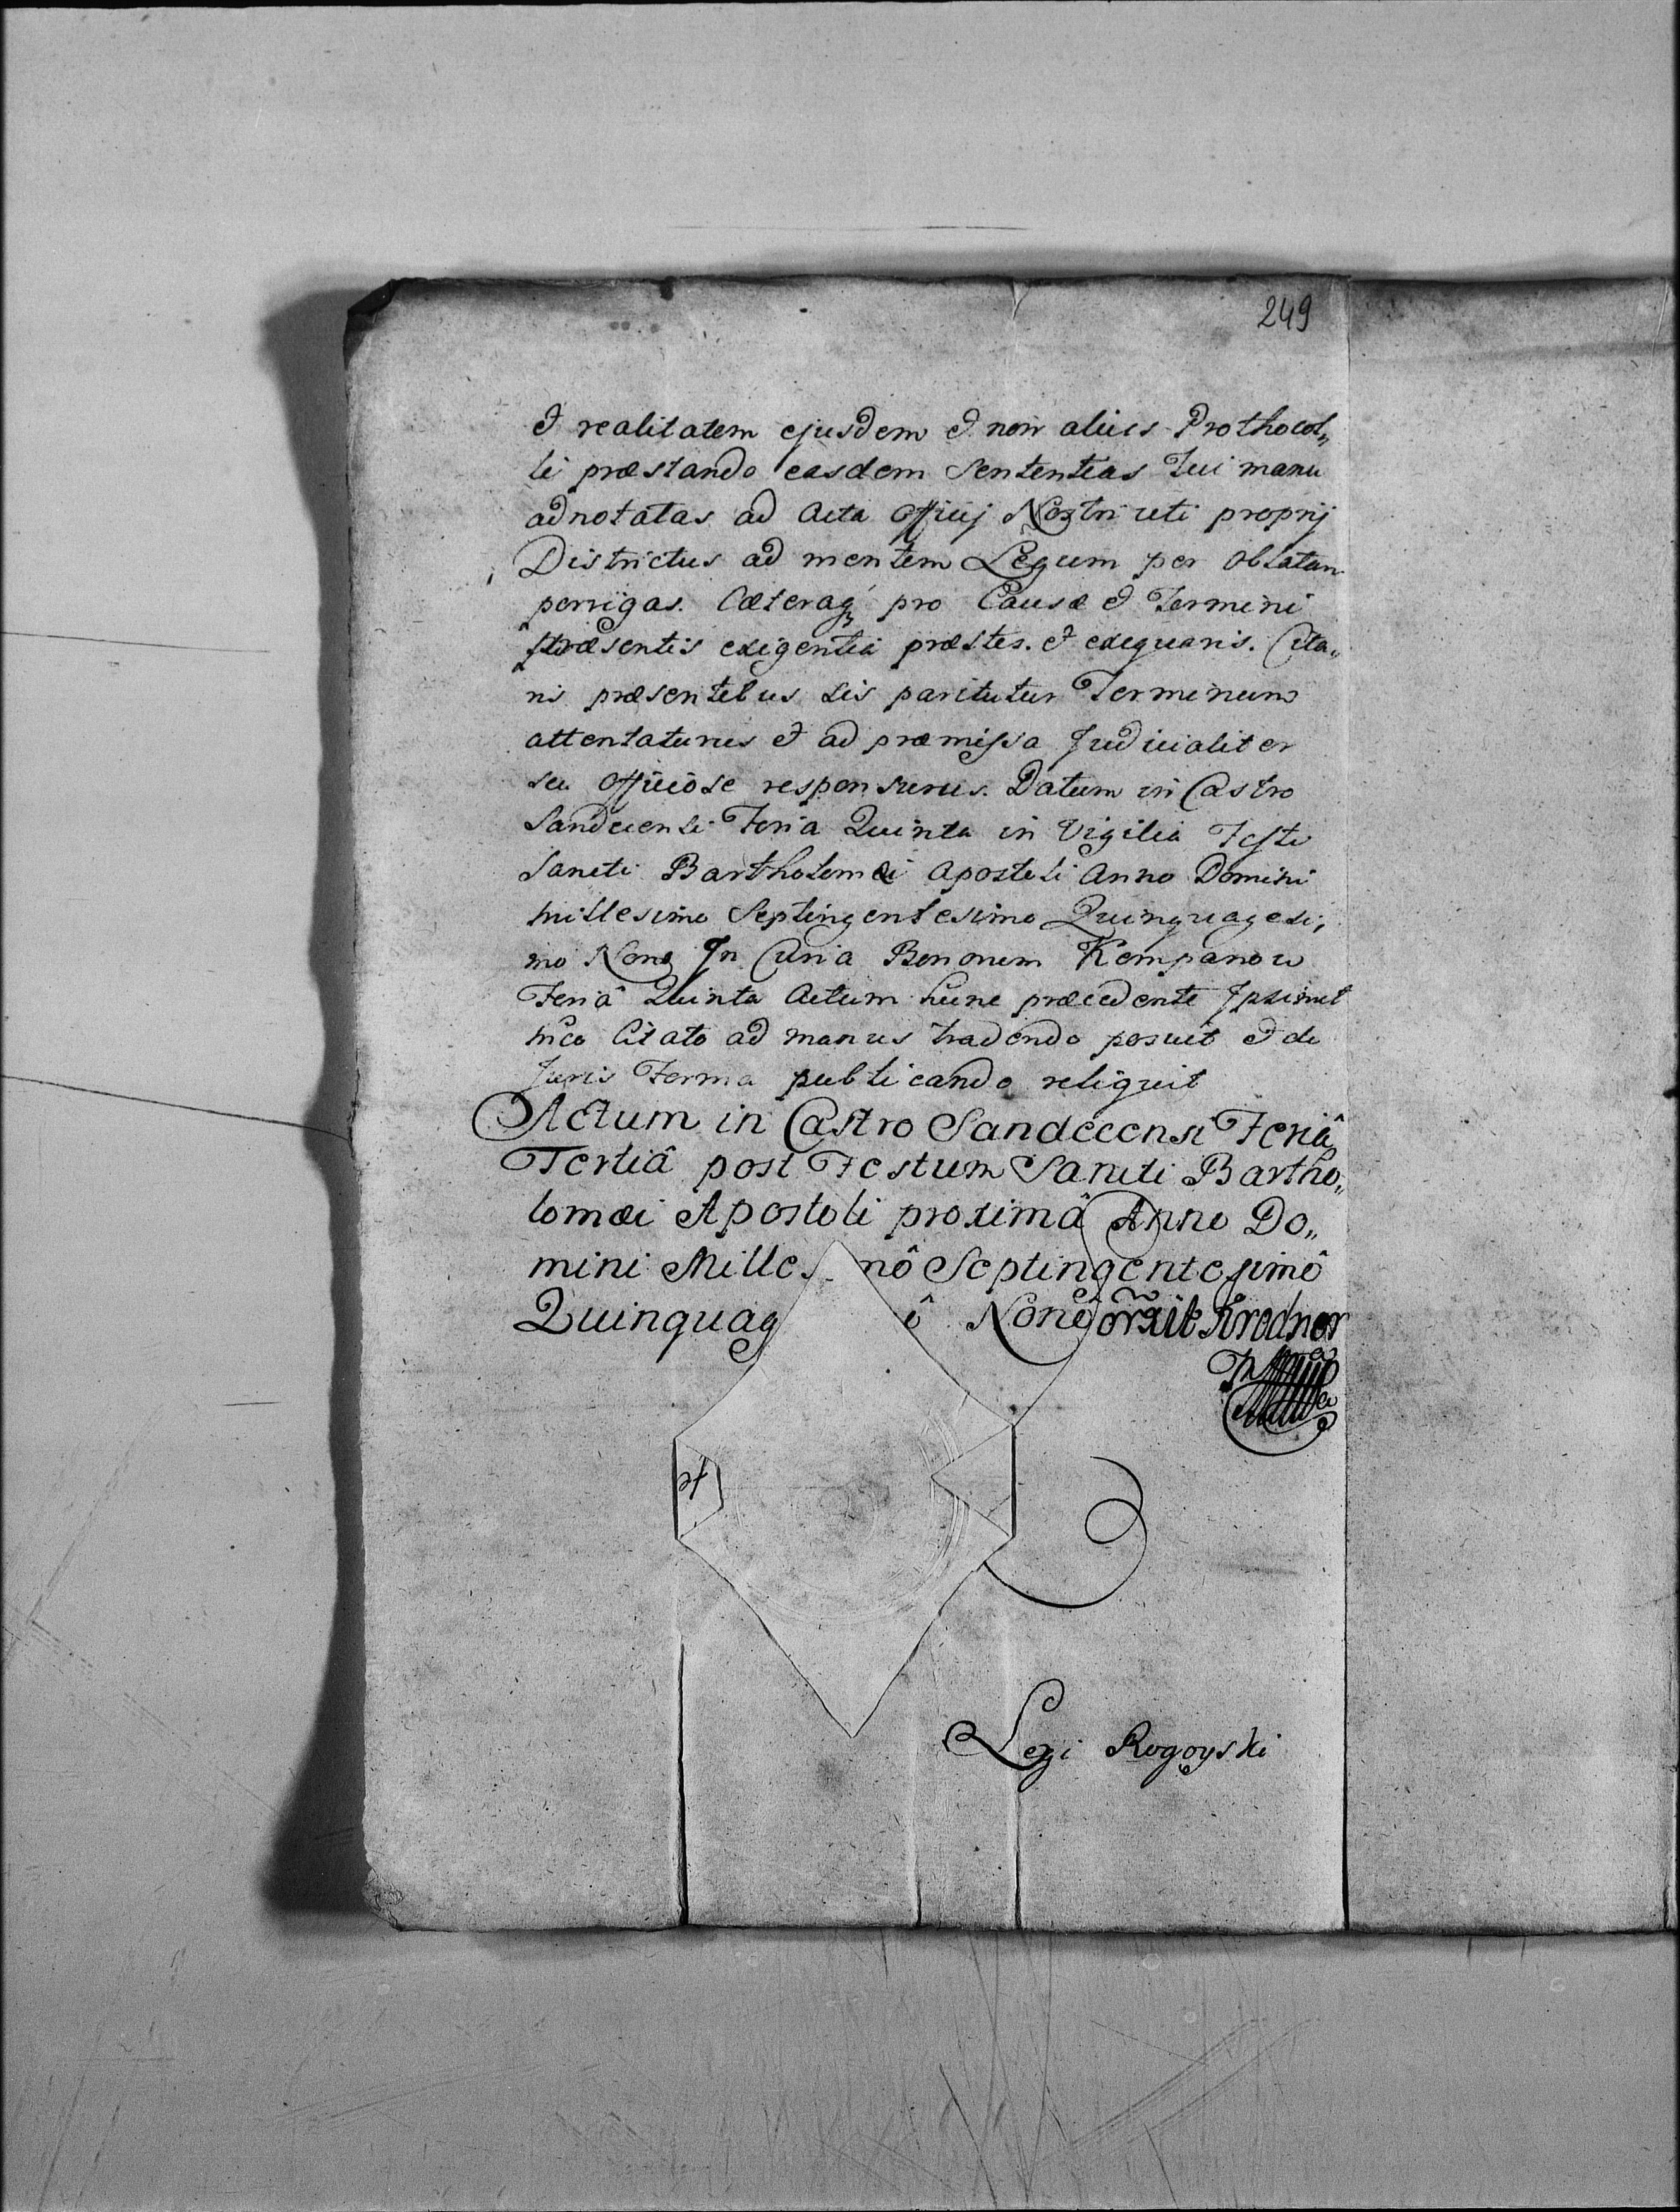 249
et realitatem ejusdem et non alius Prothocol„
li præstando easdem Sententias Tui manu
adnotatas ad Acta Officij Nostri uti proprij
Districtus ad mentem Legum per Oblatam
porrigas. Cæteraq pro Causæ et Termini
præsentis exigentia præstes. et exequaris. Cita„
ris præsentibus sis pariturus Terminum
attentaturus et ad præmissa Judicialiter
seu officiose responsurus. Datum in Castro
Sandecensi Feria Quinta in Vigilia Festi
Sancti Bartholomæi Apostoli Anno Domini
Millesimo Septingentesimo Quinquagesi„
mo Nono In Curia Bonorum Kempanow
Feriâ Quinta Actum hunc præcedente Ipsimet
Mco Citato ad manus tradendo posuit et de
Juris Forma publicando reliquit
Actum in Castro Sandecensi Feriâ
Tertiâ post Festum Sancti Bartho„
lomæi Apostoli proximâ Anno Do„
mini Milles mô Septingentesimô
Quinquag ô Nonô
Legi Rogoyski